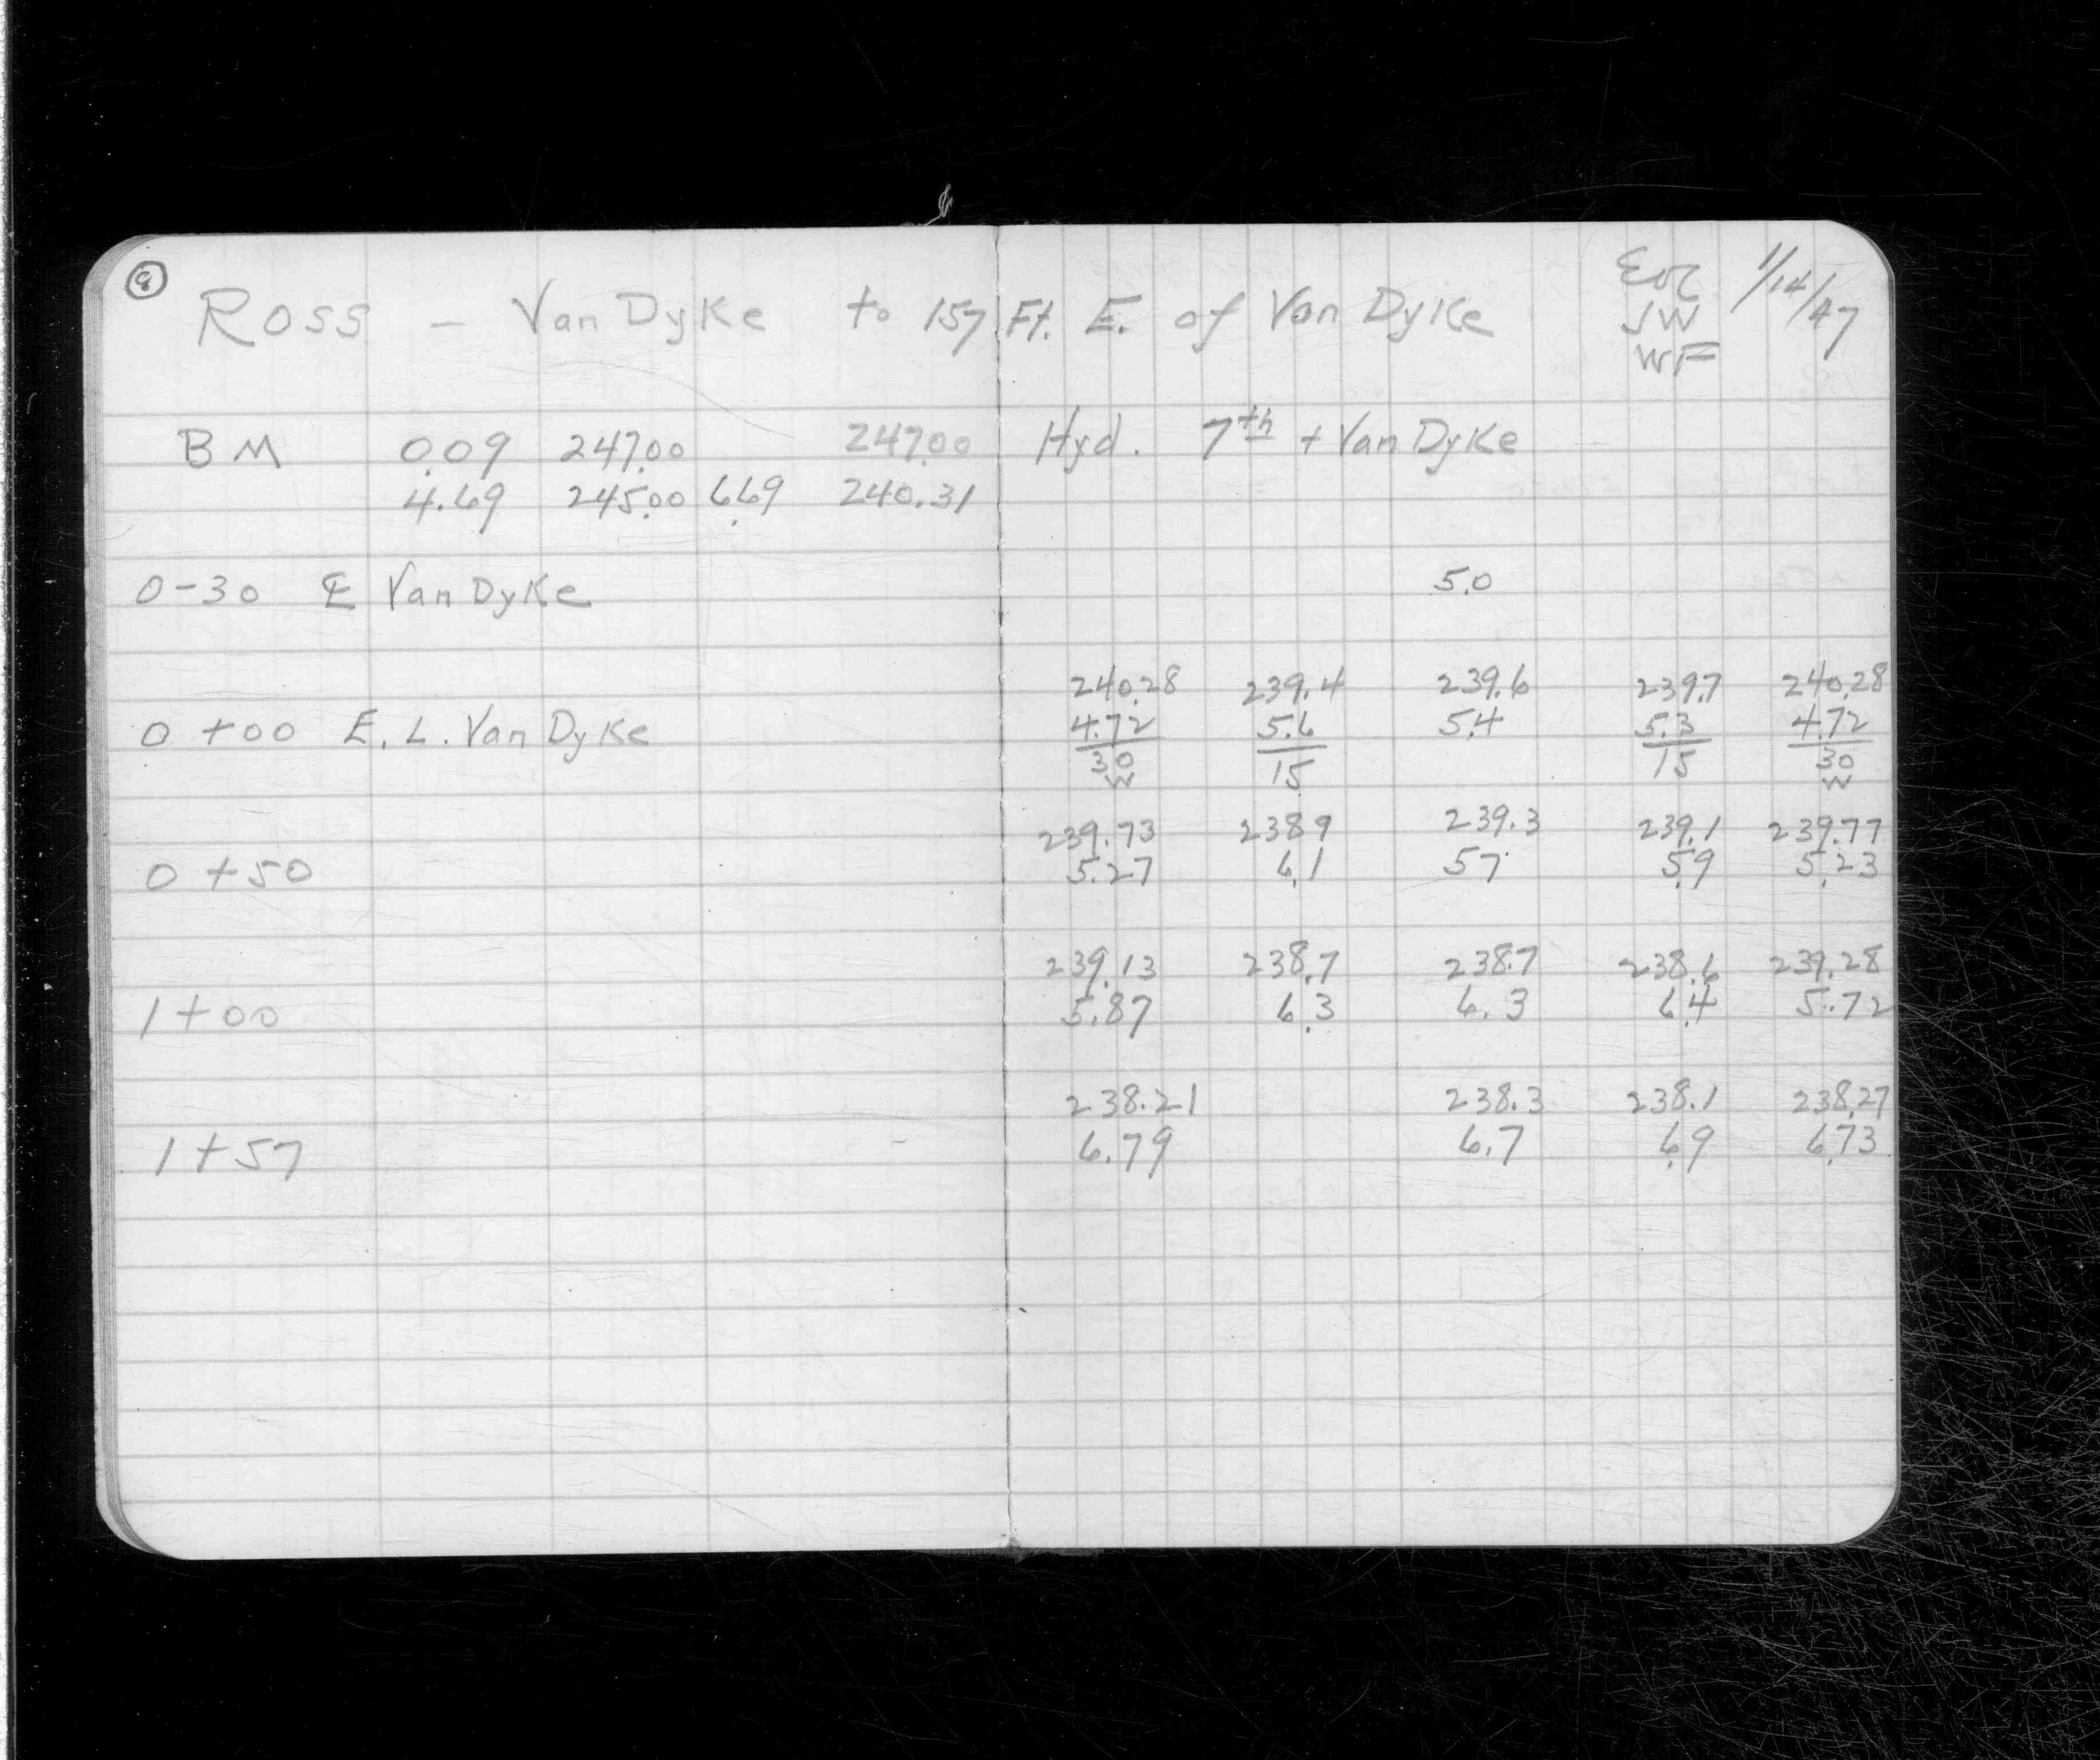 9
Ross - Van Dyke to 157 Ft. E. of Van Dyke 1/14/47
JW
WF
BM 0.09 247.00 247.00 Hyd. 7th + Van Dyke
4.69 245.00 6.69 240.31
0-30 ℄ Van Dyke 5.0
240.28 239.4 239.6 239.7 240.28
0+00 E. L. Van Dyke 4.72 5.6 5.4 5.3 4.72
30 15 15 30
W W
239.73 238.9 239.3 239.1 239.77
0+50 5.27 6.1 5.7 5.9 5.23
239.13 238.7 238.7 238.6 239.28
1+00 5.87 6.3 6.3 6.4 5.72
238.21 238.3 238.1 238.27
1+57 6.79 6.7 6.9 6.73